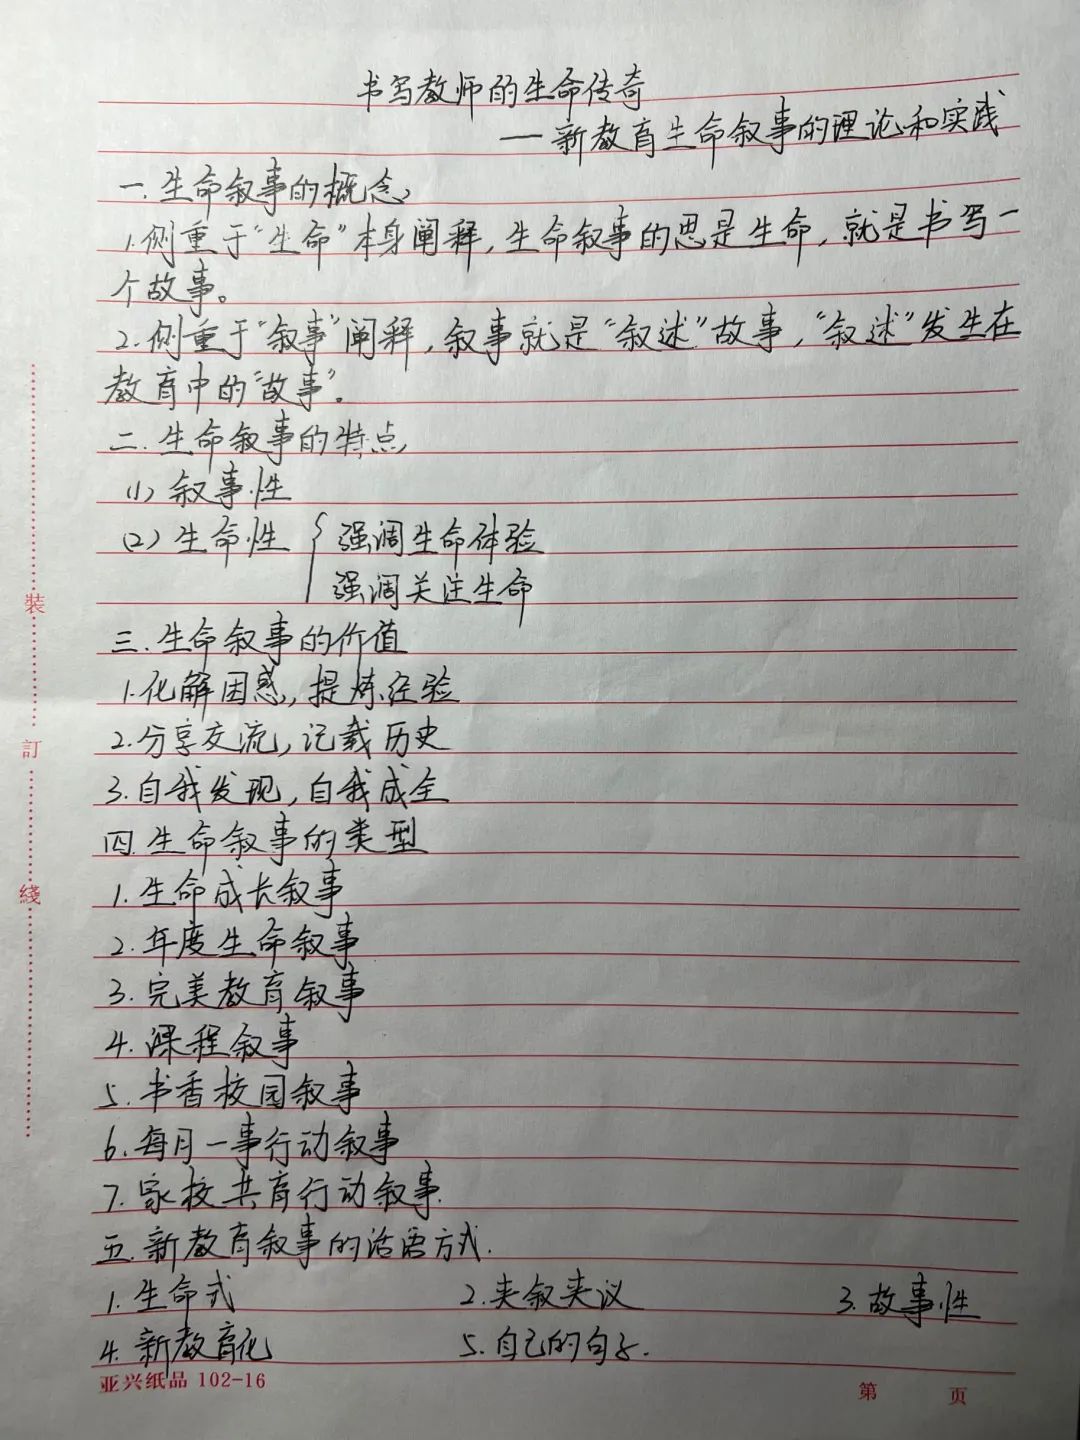 书写教师的生命传奇
—新教育生命叙事的理论和实践
一.生命叙事的概念
1.侧重于“生命”本身阐释,生命叙事的思是生命,就是书写一
个故事。
2.侧重于“叙事”阐释,叙事就是“叙述”故事,“叙述”发生在
教育中的“故事”。
二.生命叙事的特点
(1)叙事性
(2)生命性 { 强调生命体验
强调关注生命
三.生命叙事的价值
1.化解困惑,提炼经验
2.分享交流,记载历史
3.自我发现,自我成全
四.生命叙事的类型
1.生命成长叙事
2.年度生命叙事
3.完美教育叙事
4.课程叙事
5.书香校园叙事
6.每月一事行动叙事
7.家校共育行动叙事.
五.新教育叙事的话语方式.
1.生命式 2.夹叙夹议 3.故事性
4.新教育化 5.自己的句子.
亚兴纸品 102-16
第 页
裝
訂
綫